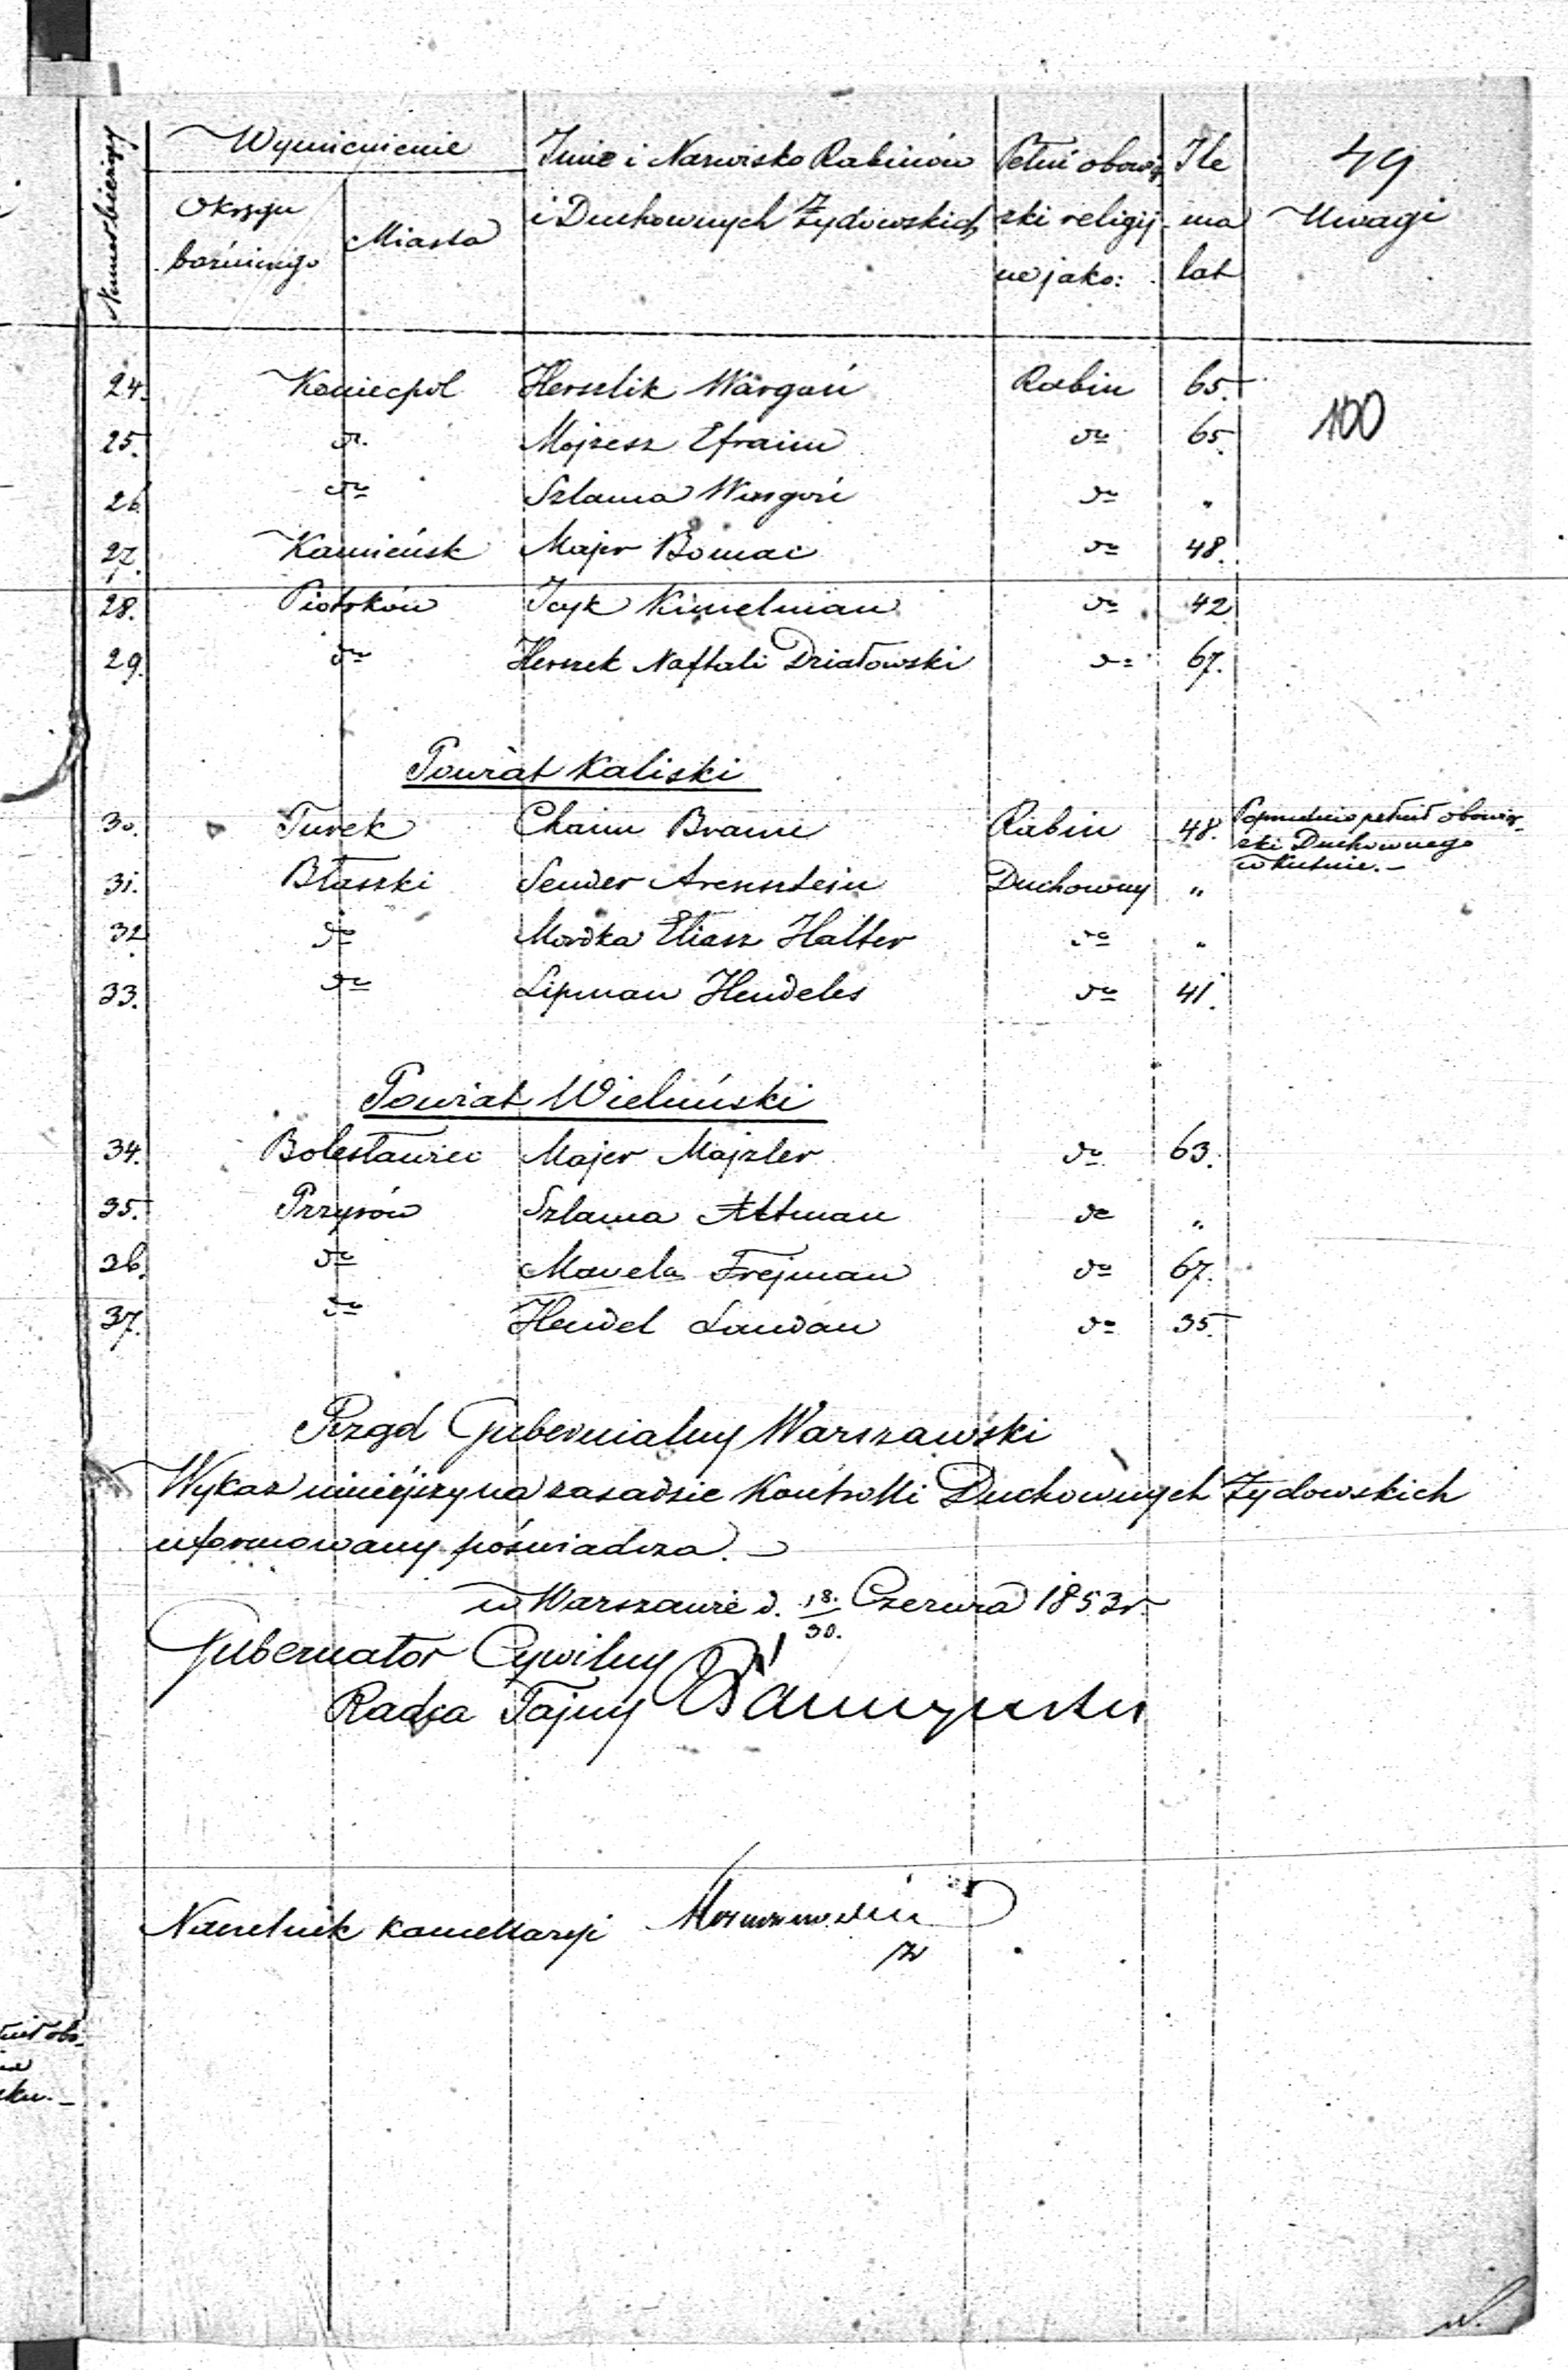 49
100
Numer bieżący
Wymienienie
Okręgu bożniczego
Miasta
Imie i Nazwisko Rabinów i Duchownych Żydowskich
Pełni obowiązki religijne jako:
Ile ma lat
Uwagi
24. Koniecpol Herszlik Wargoń Rabin 65.
25. do Mojzesz Efraim do 65
26. do Szlama Wargoń do "
27. Kamieńsk Majer do 48.
28. Piotrków Icyk Kimelman do 42
29. do Herszek Naftali Działowski do 67.
Powiat Kaliski
30. Turek Chaim Brame Rabin 48. Poprzednio pełnił obowiązki Duchownego w Kutnie.-
31. Błaszki Sender Arensztein Duchowny "
32. do Mordka Eliasz Halter do "
33. do Lipman Hendeles do 41.
Powiat Wieluński
34. Bolesławiec Majer Majzler do 63.
35. Przyrów Szlama Altman do "
36. do Mavela Frejman do 67.
37. do Hendel Landau do 35.
Rząd Gubernialny Warszawski
Wykaz niniéjszy na zasadzie Kontrolli Duchownych Żydowskich
uformowany poświadcza.
w Warszawie d. 18/30. Czerwca 1853 r.
Gubernator Cywilny
Radca Tajny
Naczelnik Kancellaryi